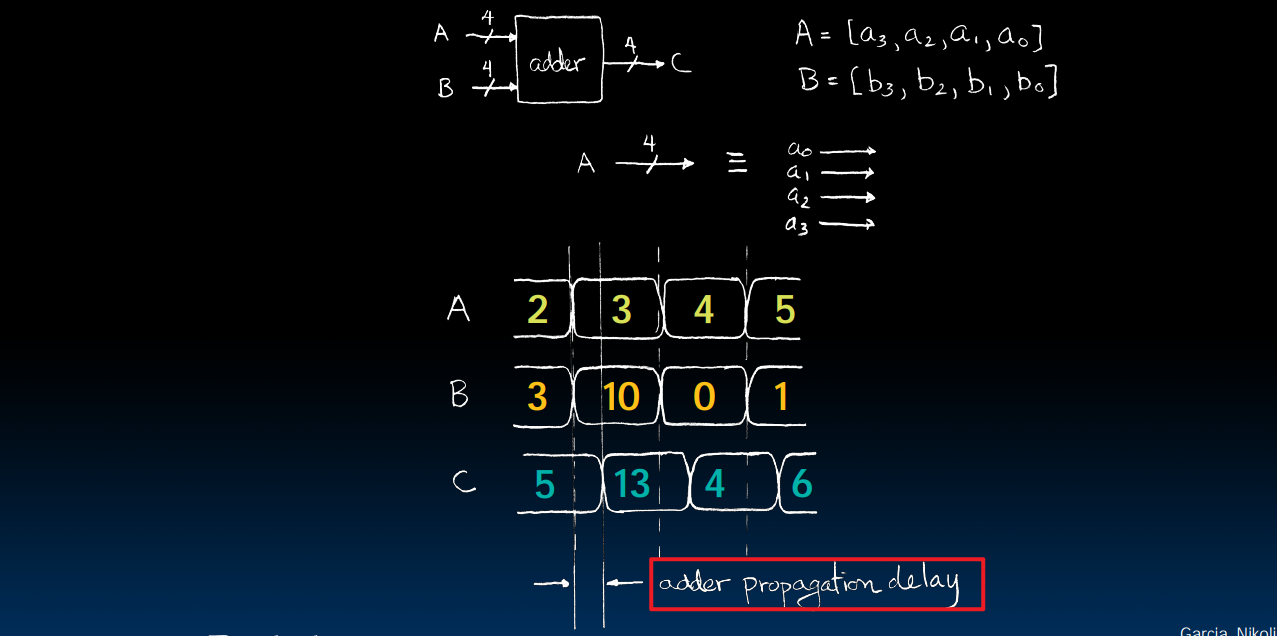 4
A
adder
4
C
4
B
A = [a₃, a₂, a₁, a₀]
B = [b₃, b₂, b₁, b₀]
A 4 ≡ a₀
a₁
a₂
a₃
A 2 3 4 5
B 3 10 0 1
C 5 13 4 6
adder propagation delay
Garcia, Nikoli